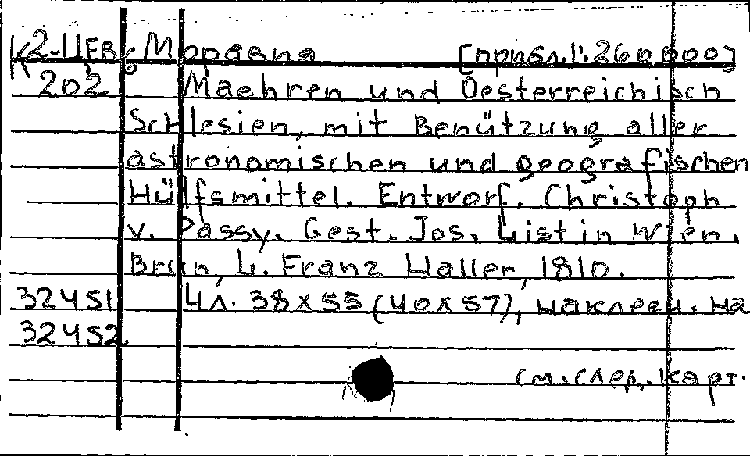 К2-ЦЕВр Моравия [прибл.1:260000]
202 Maehren und Oesterreichisch
Schlesien, mit Benützung aller
astronomischen und geografischen
Hülfsmittel. Entworf. Christoph
v. Passy. Gest. Jos. List in Wien.
Brün, b. Franz Haller, 1810.
32451 4л. 38x55 (40x57), наклеен. на
32452
См.след.карт.